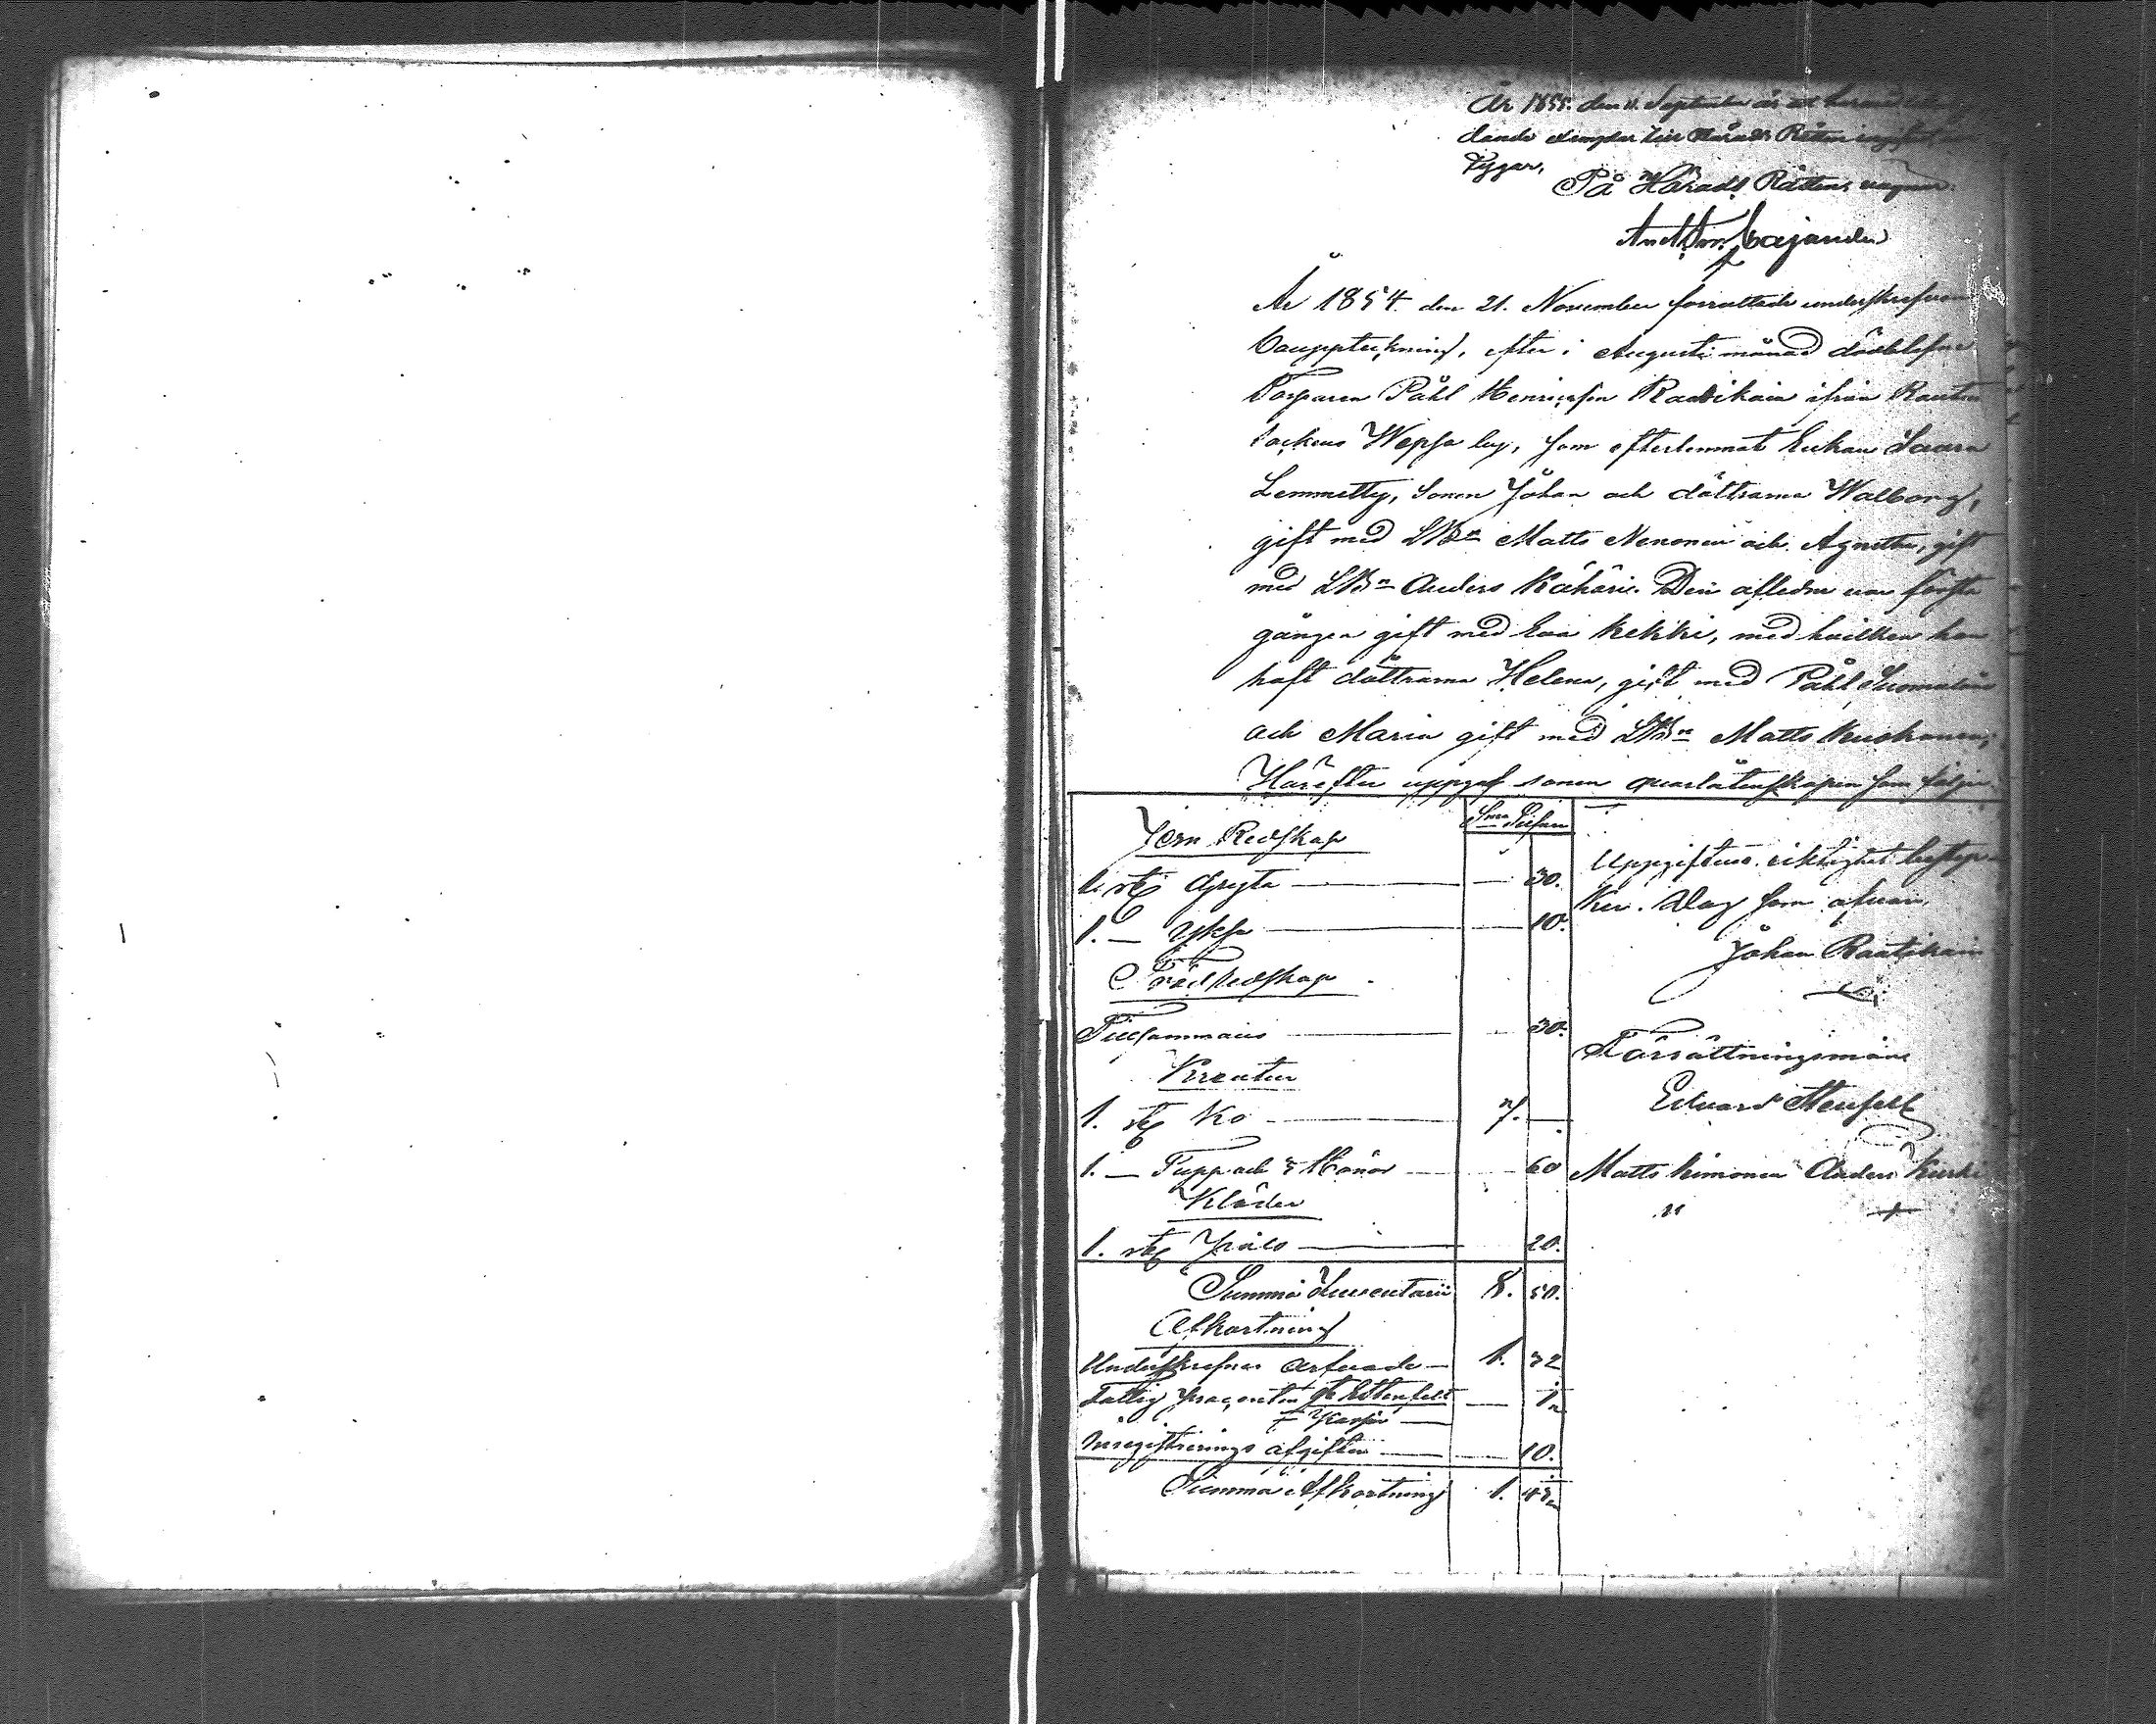 År 1855. den 11. September är ett härmed
lande exemplar till Härads Rätten ingifvet,
Tygar,
På Härads Rättens vägnar.
Cajander
År 1854. den 21. November förrättade underskrefvne
Bouppteckning, efter i Augusti månad dödblefne
Torparen Påhl Henricsson Raatikain ifrån Rautus
Sockens Wepsa by, som efterlemnat Enkan Saara
Lemmetty, Sonen Johan och döttrarna Walborg,
gift med LBn Matts Nenonen och Agnetha, gift
med LBn Anders Kähäri. Den aflidne var första
gången gift med Eva Kekki, med hvilken han
haft döttrarna Helena, gift med Påhl Suomalain
och Maria gift med LBn Matts Keuhonen;
Härefter uppgaf sonen qvarlåtenskapen som följer
Jern Redskap
Smr Silfver
1 st Gryta — — 30.
1. — Yxa — — 10.
Trädredskap.
Tillsammans — — 30.
Kreatur
1. st Ko — 7. —
1. — Tupp och 3 Hönor — — 60
Kläder
1. st Päls — 20.
Summa Inventarii 8. 50.
Afkortning
Underskrefnes arfvode — 1. 32
Fattig procenten — 1
Inregistrerings afgiften — — 10.
Summa Afkortning 1. 43
Uppgiftens riktighet
Dag som ofvan,
Johan Raatikain
Förrättningsmän
Eduard Stenfelt
Matts Kimonen Anders Kurki